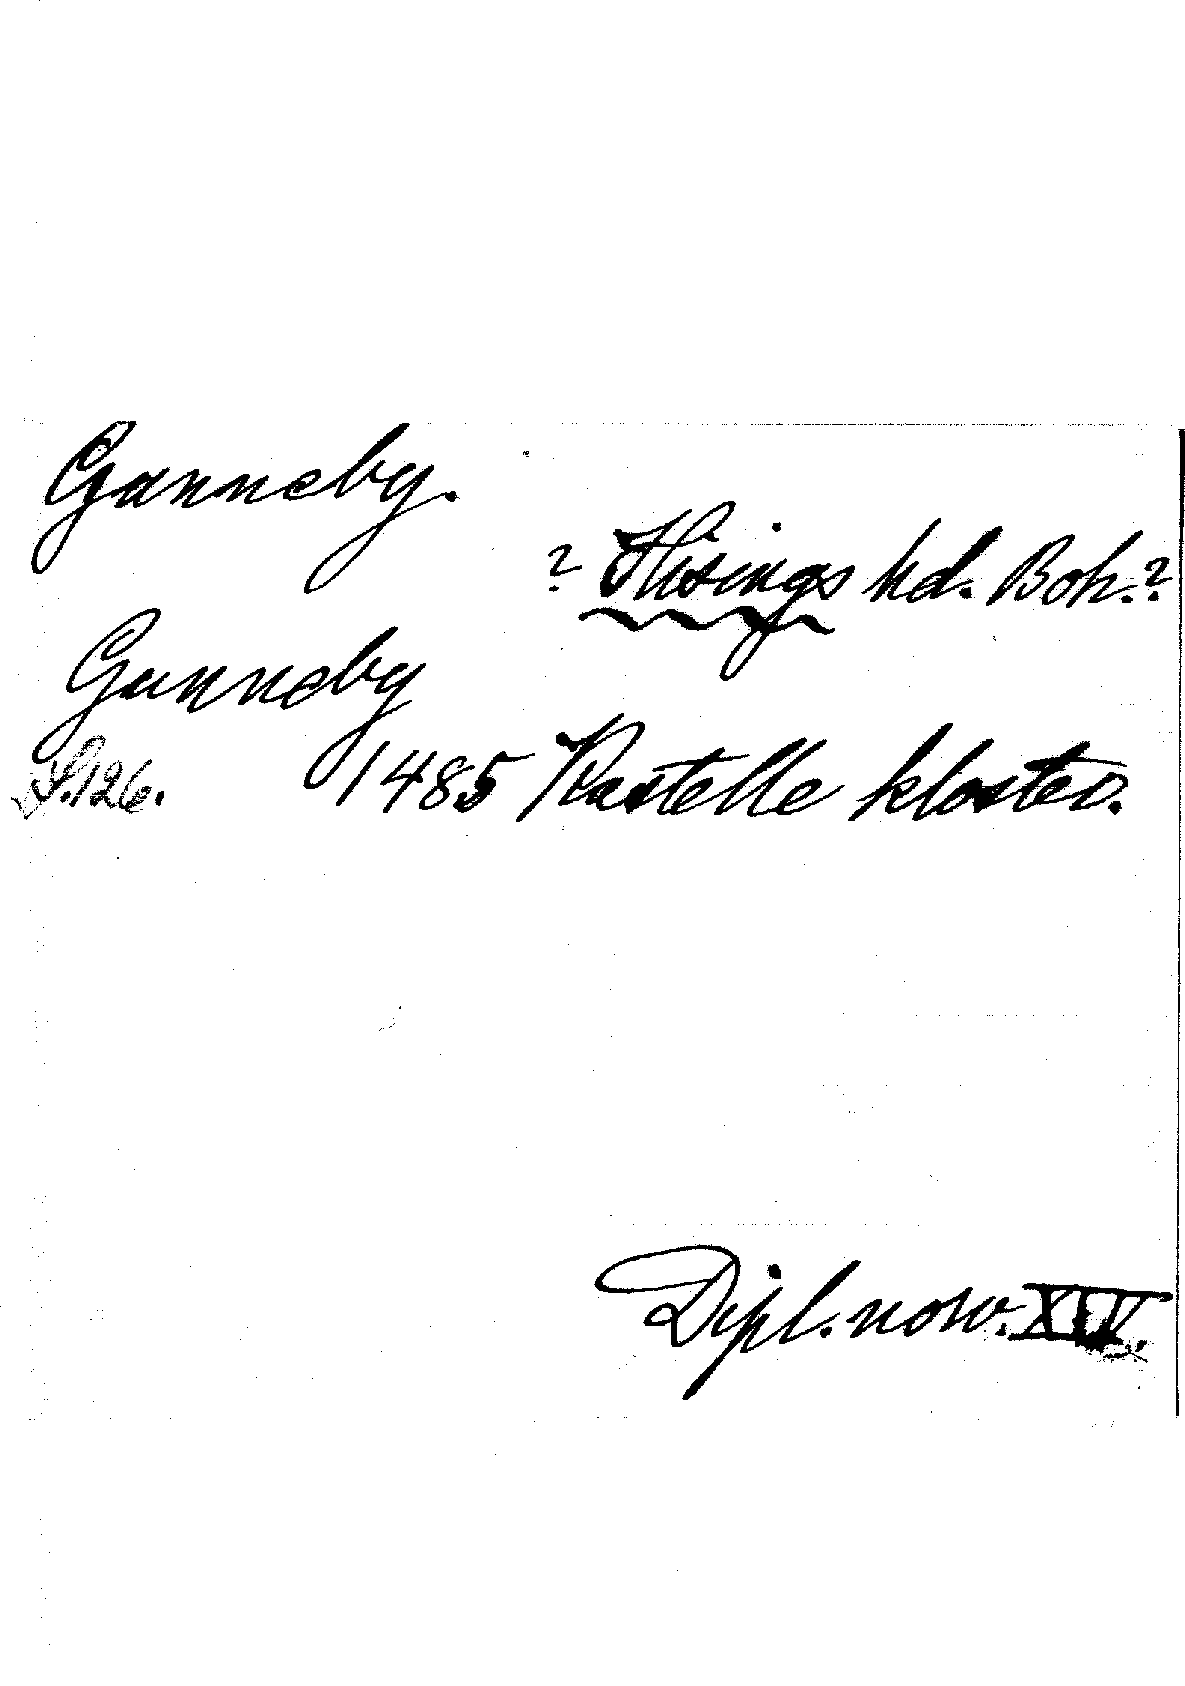 Ganneby.
? Hisings hd. Boh.?
Gunneby
S.126. 1485 Kastelle kloster.
Dipl. norv. XIV.